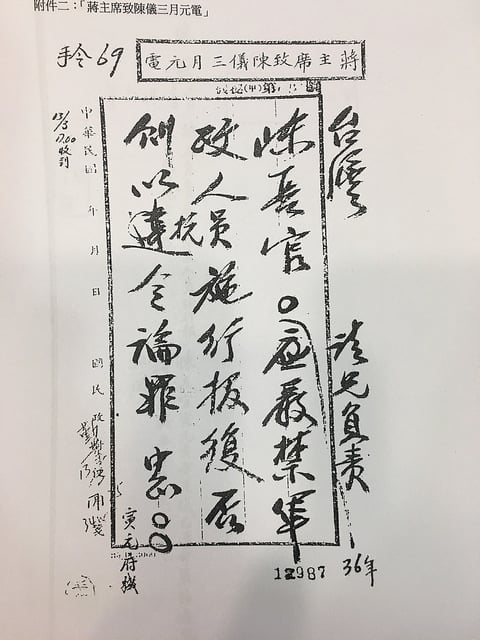 附件二:「蔣主席致陳儀三月元電」
手令69
蔣主席致陳儀三月元電
台灣
陳長官。請兄負責
應嚴禁軍
政人員施行報復否
則以違抗令論罪 中〇〇
寅元府機
中華民國 年 月 日 國民政
13/3
17.00
收到
12987
36年